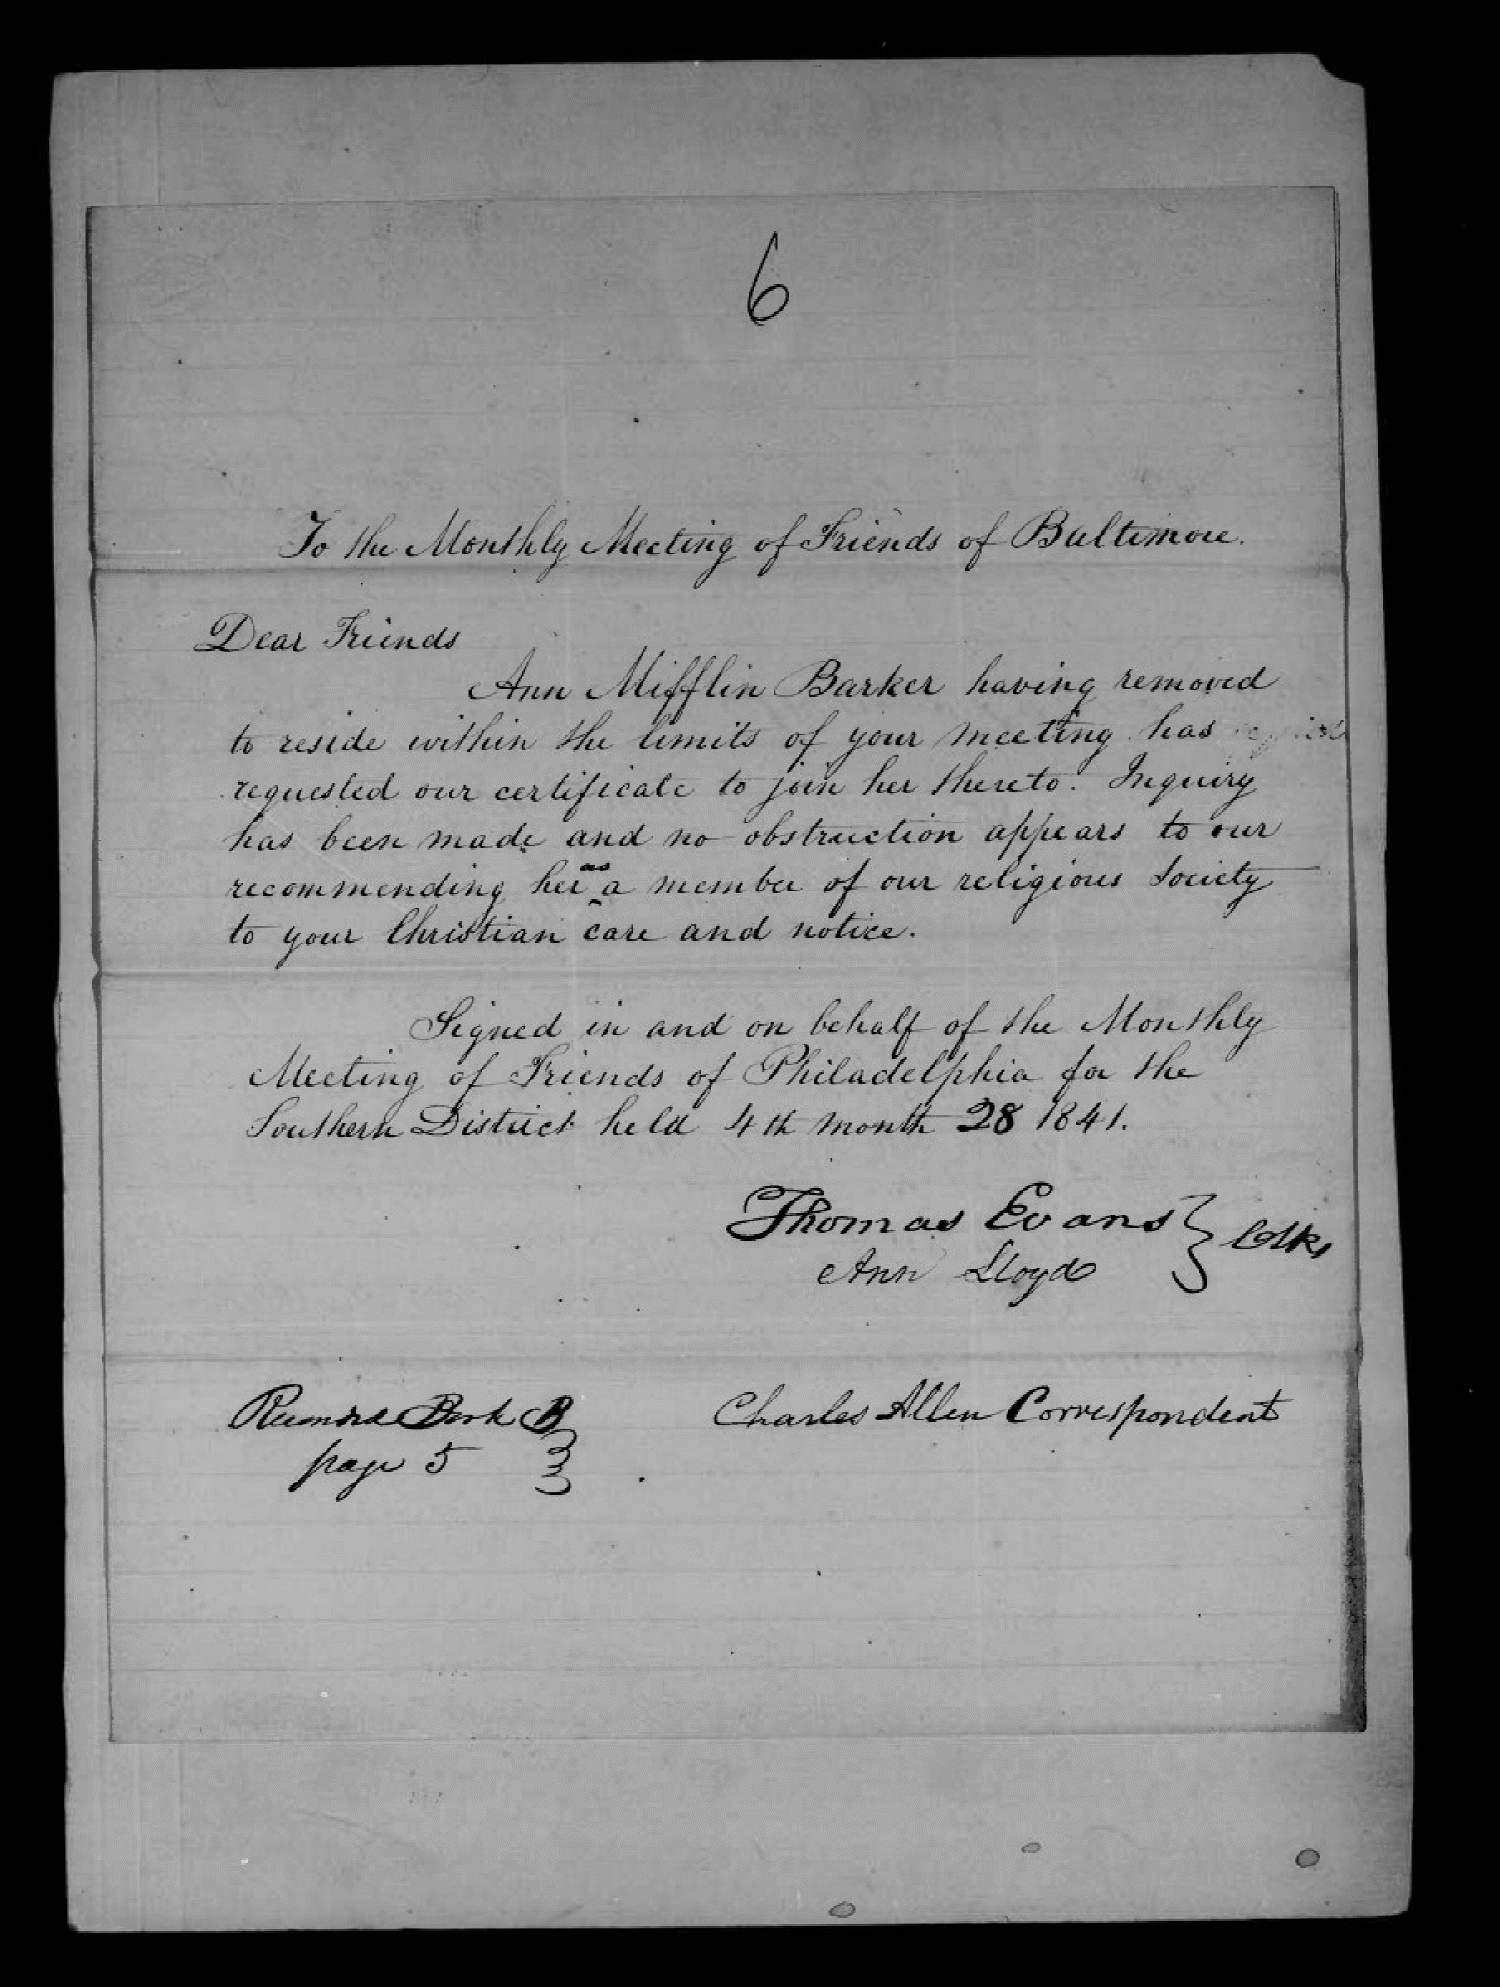 6
To the Monthly Meeting of Friends of Baltimore.
Dear Friends
Ann Mifflin Barker having removed
to reside within the limits of your meeting has
requested our certificate to join her thereto. Inquiry
has been made and no obstruction appears to our
recommending her as a member of our religious Society
to your Christian care and notice.
Signed in and on behalf of the Monthly
Meeting of Friends of Philadelphia for the
Southern District held 4th month 28 1841.
Thomas Evans } Clks
Ann Lloyd
Recorded Book B
page 5
Charles Allen Correspondent